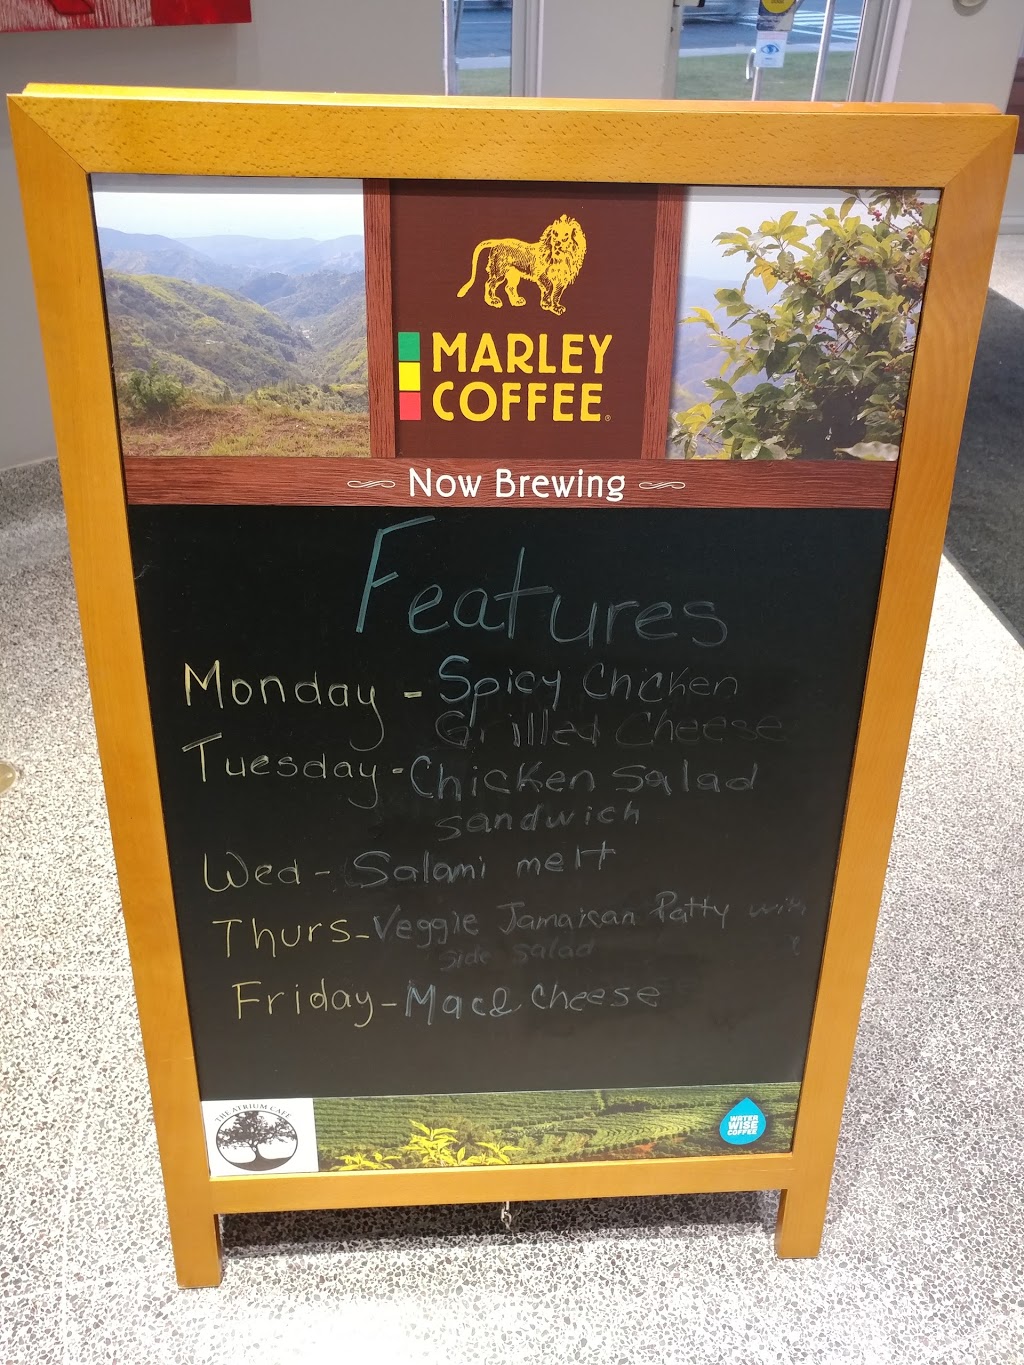 MARLEY
COFFEE
Now Brewing
Features
Monday - Spicy Chicken
Grilled Cheese
Tuesday - Chicken Salad
sandwich
Wed - Salami melt
Thurs - Veggie Jamaican Patty with
side salad
Friday - Mac & Cheese
THE ATRIUM CAFE
WATER
WISE
COFFEE